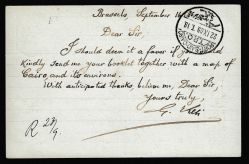 Brussels, September 16
Dear Sir,
I should deem it a favor if you
kindly send me your booklet together with a map of
Cairo, and its environs.
With anticipated thanks, believe me, Dear Sir,
Yours truly,
G.
R 23/9